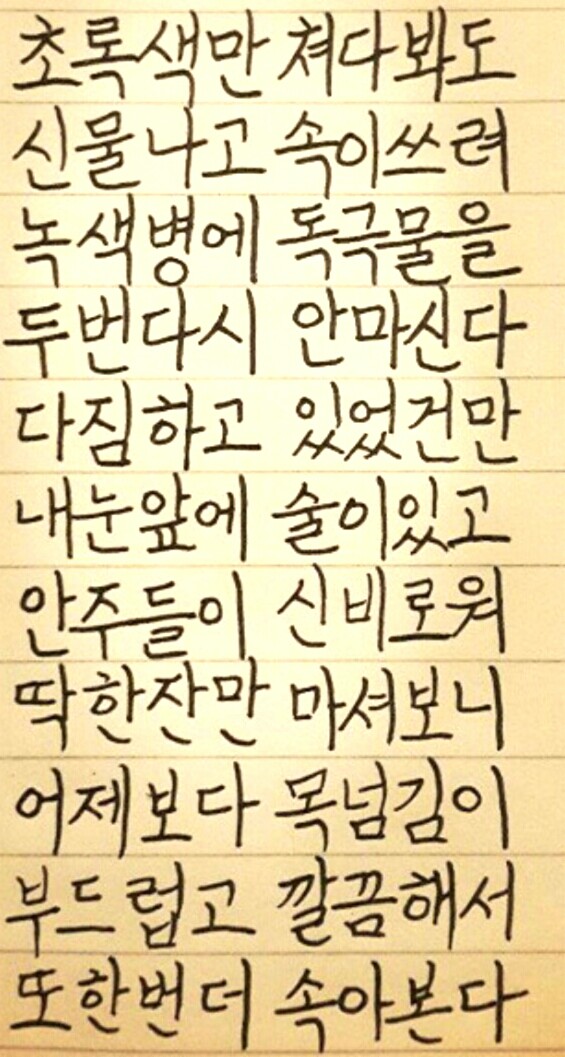 초록색만 쳐다봐도
신물나고 속이쓰려
녹색병에 독극물을
두번다시 안마신다
다짐하고 있었건만
내눈앞에 술이있고
안주들이 신비로워
딱한잔만 마셔보니
어제보다 목넘김이
부드럽고 깔끔해서
또한번더 속아본다